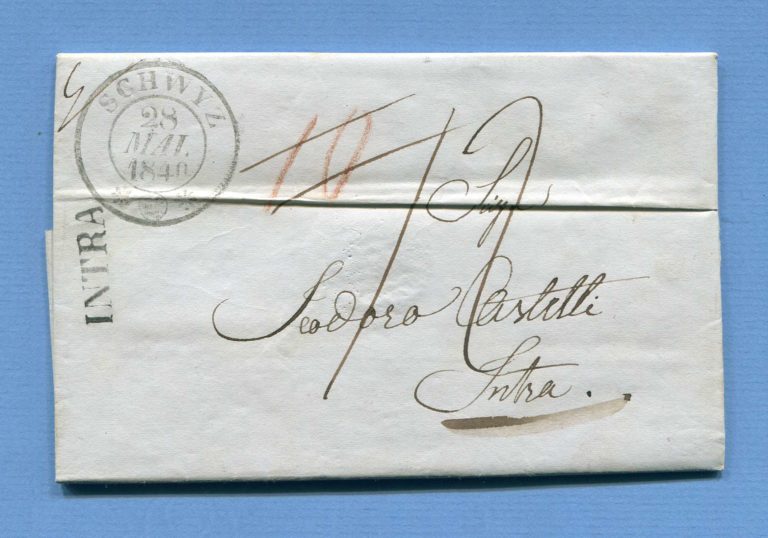 SCHWYZ
28
MAI.
1840
INTRA
10
Sigr
Teodoro Castelli
Intra.